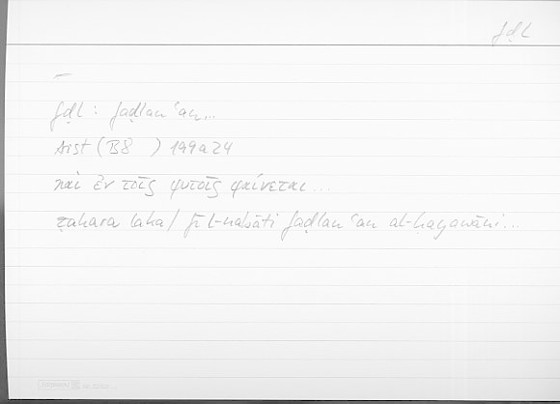 fḍl
—
fḍl : faḍlan ʿan...
Arist (B8 ) 199a24
καὶ ἐν τοῖς φυτοῖς φαίνεται...
ẓahara laka / fī l-nabāti faḍlan ʿan al-ḥayawāni...